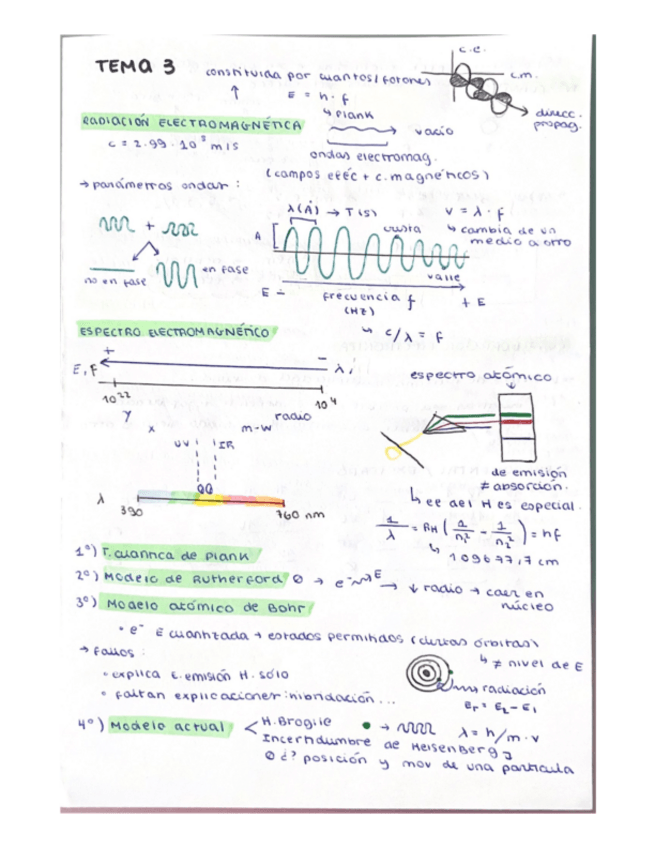 TEMA 3
constituida por cuantos/fotones
E = h · f
↳ Plank
c.e.
c.m.
direcc. propag.
RADIACIÓN ELECTROMAGNÉTICA
vacío
c = 2.99 · 10⁸ m/s
ondas electromag.
(campos eléc + c. magnéticos)
→ parámetros ondas :
λ(Å) → T(s)
v = λ · f
↳ cambia de un medio a otro
+
A
cresta
valle
no en fase
en fase
E -
frecuencia f
(Hz)
+ E
↳ c/λ = F
ESPECTRO ELECTROMAGNÉTICO
+
-
E, F
λ
espectro atómico
10²²
10⁴
γ
x
UV
IR
m-w
radio
λ
390
760 nm
de emisión
≠ absorción.
↳ ee del H es especial.
1/λ = RH (1/n₁² - 1/n₂²) = hf
↳ 109677,7 cm
1º) T. cuántica de Plank
2º) Modelo de Rutherford ∅ → e⁻ E → ↓ radio → caer en núcleo
3º) Modelo atómico de Bohr
• e⁻ E cuantizada → estados permitidos (ciertas órbitas)
↳ ≠ nivel de E
→ Fallos :
• explica E. emisión H. sólo
• faltan explicaciones: hibridación...
radiación
Er = E₂ - E₁
4º) Modelo actual
H. Broglie → λ = h/m · v
Incertidumbre de Heisenberg
∅ ¿? posición y mov de una partícula